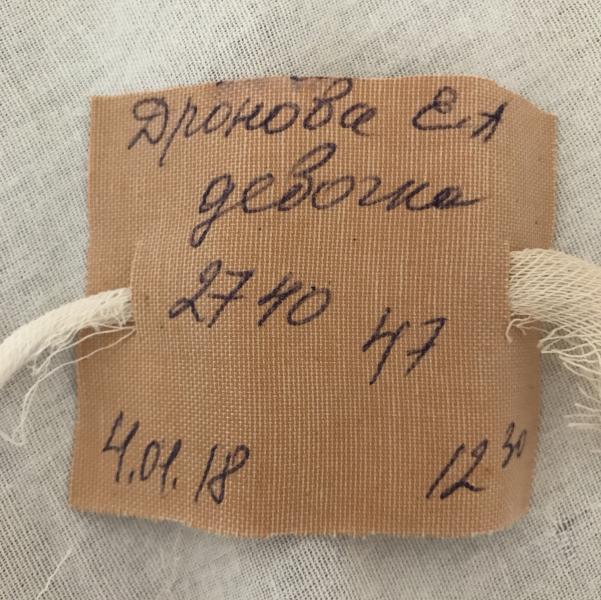 Дронова ЕА
девочка
2740
47
4.01.18 12³⁰